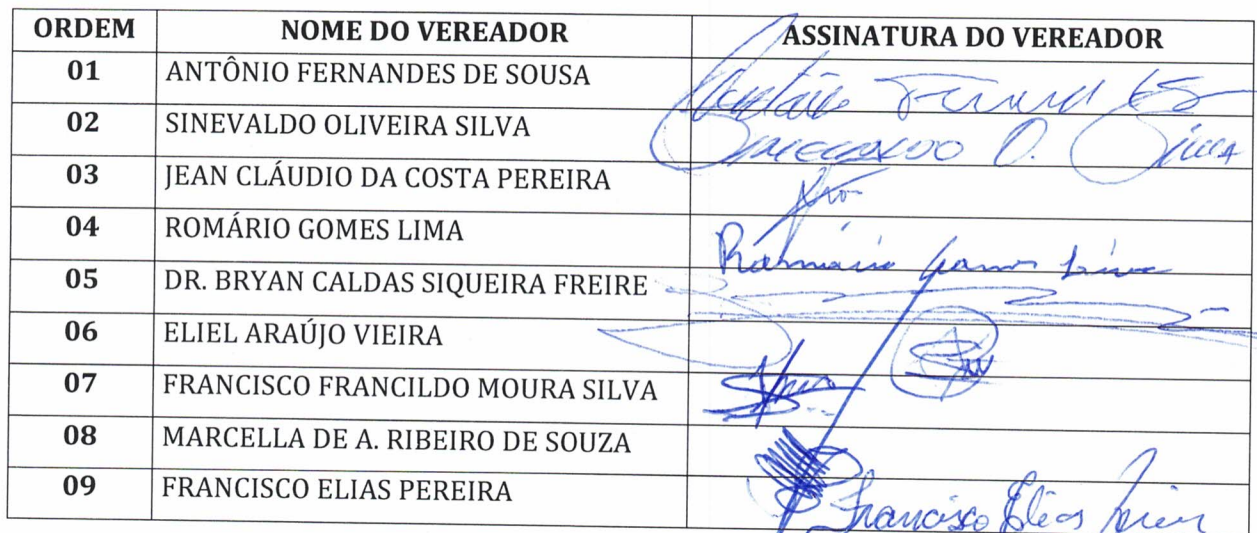 ORDEM NOME DO VEREADOR ASSINATURA DO VEREADOR
01 ANTÔNIO FERNANDES DE SOUSA
02 SINEVALDO OLIVEIRA SILVA
03 JEAN CLÁUDIO DA COSTA PEREIRA
04 ROMÁRIO GOMES LIMA Romário Gomes Lima
05 DR. BRYAN CALDAS SIQUEIRA FREIRE
06 ELIEL ARAÚJO VIEIRA
07 FRANCISCO FRANCILDO MOURA SILVA
08 MARCELLA DE A. RIBEIRO DE SOUZA
09 FRANCISCO ELIAS PEREIRA Francisco Elias